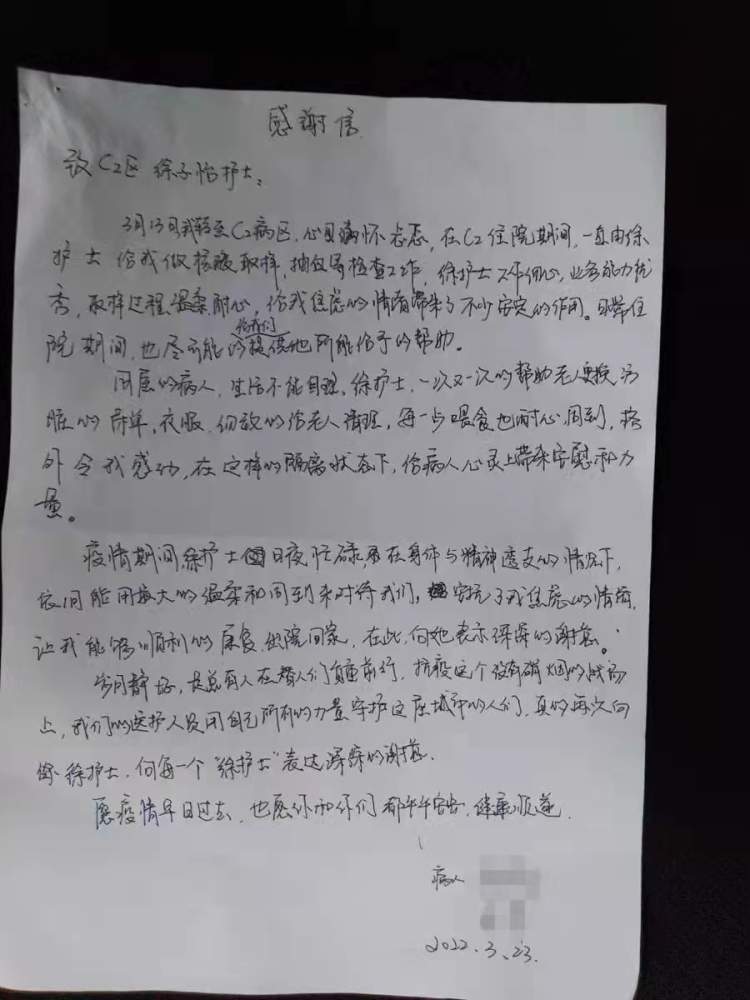 感谢信
致C2区 徐子怡护士:
3月13日我转至C2病区,心里满怀忐忑,在C2住院期间,一直由徐
护士给我做核酸取样,抽血等检查工作,徐护士工作细心,业务能力优
秀,取样过程温柔耐心,给我焦虑的情绪带来了不少安定的作用。日常住
给我们
院期间,也尽可能的提供她所能给予的帮助。
同屋的病人,生活不能自理,徐护士,一次又一次的帮助老人更换污
脏的床单,衣服,细致的给老人清理,每一步喂食也耐心周到,格
外令我感动,在这样的隔离状态下,给病人心灵上带来安慰和力
量。
疫情期间,徐护士日夜忙碌在身体与精神透支的情况下,
依旧能用最大的温柔和周到来对待我们,安抚了我焦虑的情绪,
让我能够顺利的康复,出院回家,在此,向她表示深深的谢意。
岁月静好,是总有人在替人们负重前行,抗疫这个没有硝烟的战场
上,我们的医护人员用自己所有的力量守护这座城市的人们,真的再次向
徐护士,向每一个“徐护士”表达深深的谢意.
愿疫情早日过去,也愿你和你们都平平安安,健康顺遂.
病人
2022.3.23.